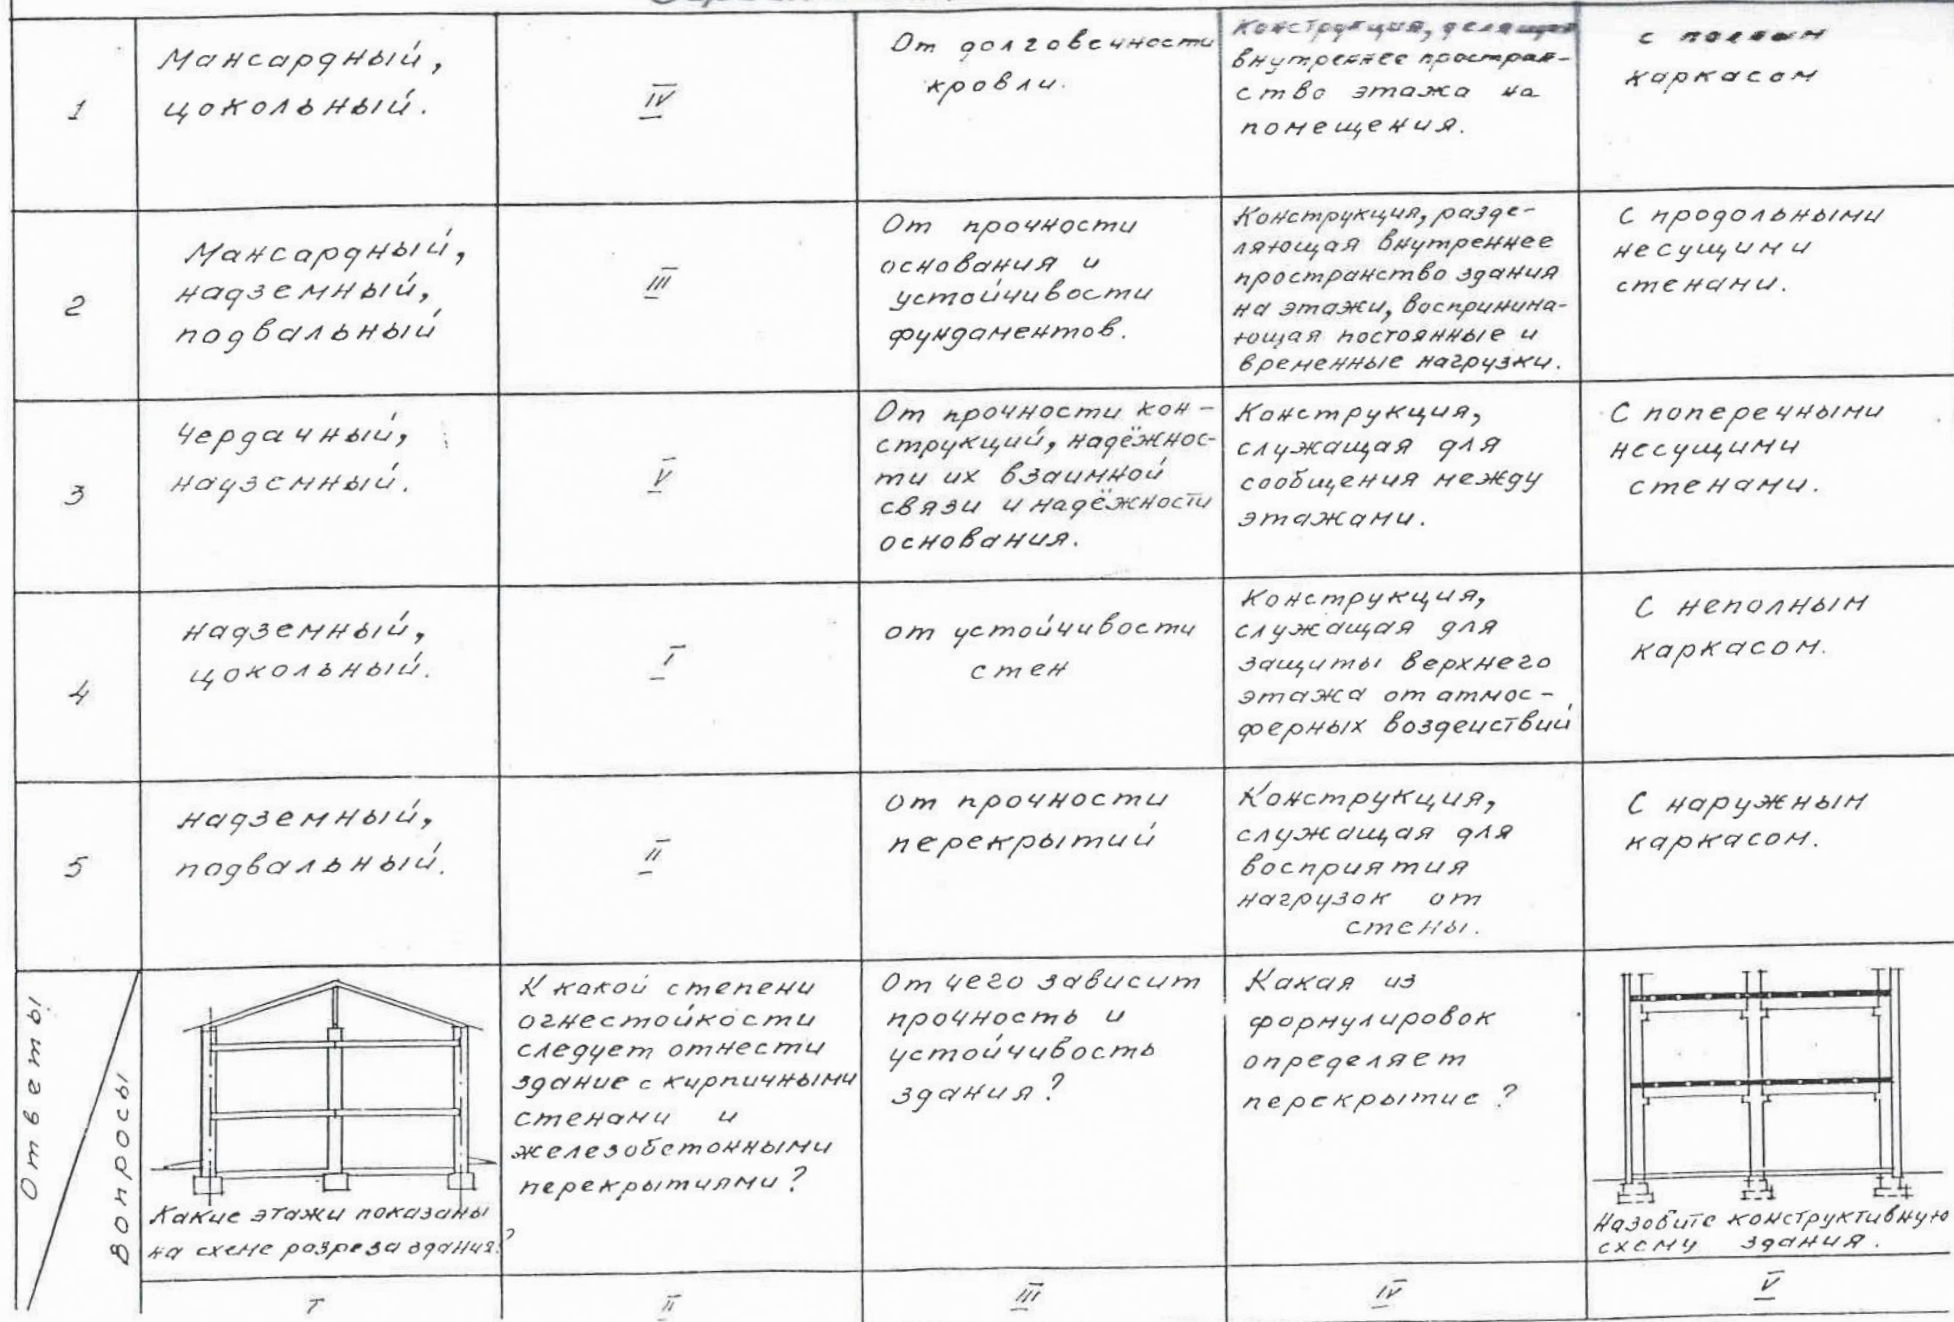 1
Мансардный,
цокольный.
IV
От долговечности
кровли.
Конструкция, делящая
внутреннее простран-
ство этажа на
помещения.
с полным
каркасом
2
Мансардный,
надземный,
подвальный
III
От прочности
основания и
устойчивости
фундаментов.
Конструкция, разде-
ляющая внутреннее
пространство здания
на этажи, воспринима-
ющая постоянные и
временные нагрузки.
С продольными
несущими
стенами.
3
Чердачный,
наузсмный.
V
От прочности кон-
струкций, надёжнос-
ти их взаимной
связи и надёжности
основания.
Конструкция,
служащая для
сообщения между
этажами.
С поперечными
несущими
стенами.
4
надземный,
цокольный.
I
от устойчивости
стен
Конструкция,
служащая для
защиты верхнего
этажа от атмос-
ферных воздействий
С неполным
каркасом.
5
надземный,
подвальный.
II
от прочности
перекрытий
Конструкция,
служащая для
восприятия
нагрузок от
стены.
С наружным
каркасом.
Ответы
Вопросы
Какие этажи показаны
на схеме разреза здания?
К какой степени
огнестойкости
следует отнести
здание с кирпичными
стенами и
железобетонными
перекрытиями?
От чего зависит
прочность и
устойчивость
здания?
Какая из
формулировок
определяет
перекрытие?
Назовите конструктивную
схему здания.
I
II
III
IV
V